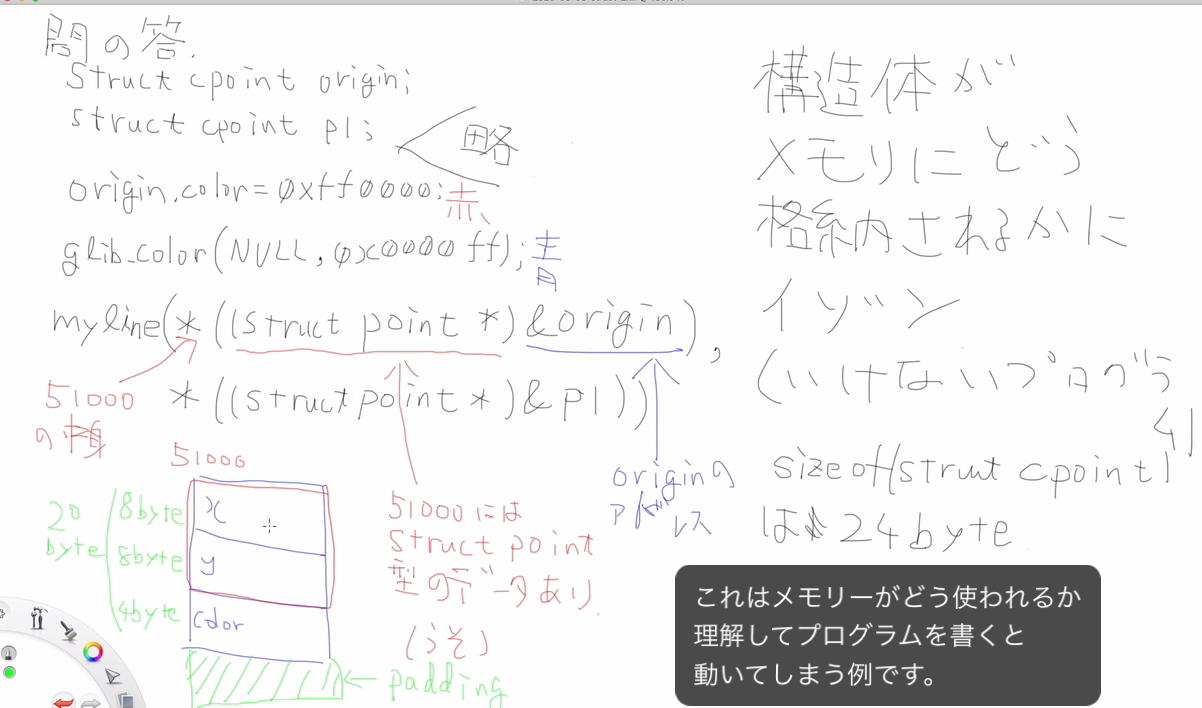 問の答.
struct cpoint origin;
struct cpoint p1;
略
origin.color=0xff0000;
赤
glib_color(NULL,0x0000ff);
青
myline(*((struct point *)&origin),
*((struct point *)&p1))
51000
の中身
51000
20
byte
8byte
x
8byte
y
4byte
color
padding
51000には
struct point
型のデータあり
(うそ)
originの
アドレス
構造体が
メモリにどう
格納されるかに
イゾン
(いけないプログラ
ム)
sizeof(struct cpoint)
は 24byte
これはメモリーがどう使われるか
理解してプログラムを書くと
動いてしまう例です。